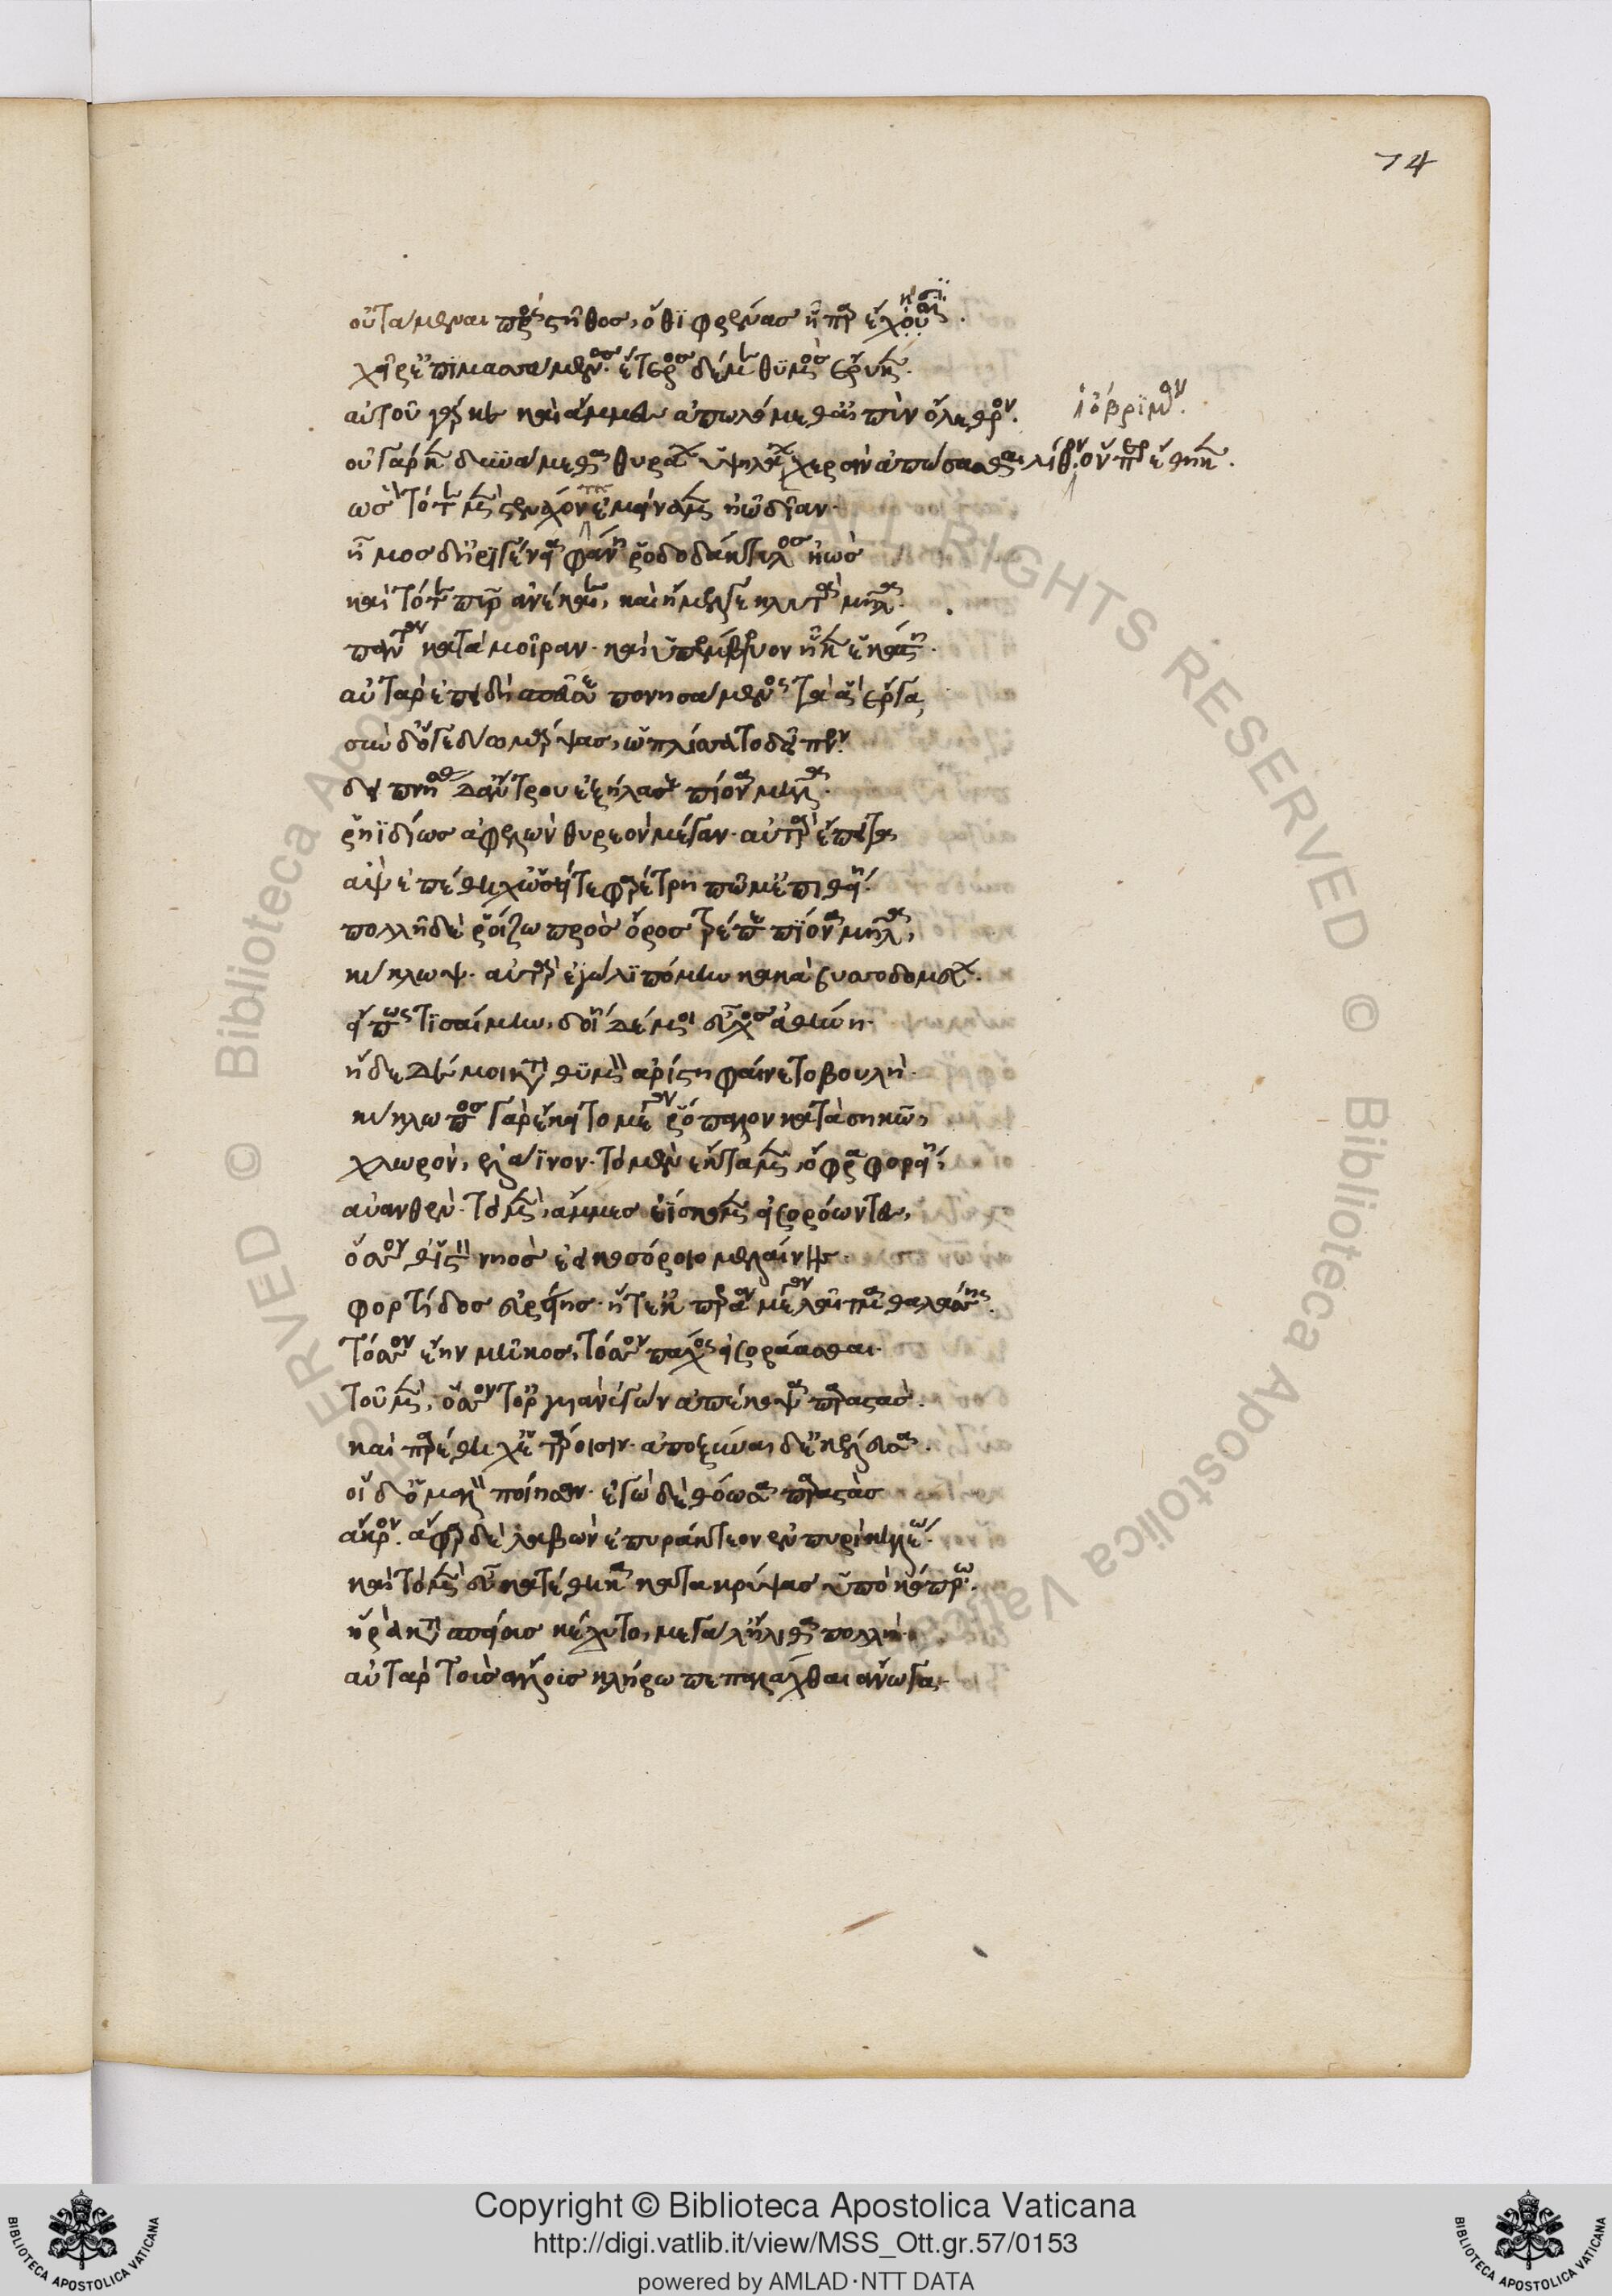 74
οὐτάμεναι πρὸς στῆθος, ὅθι φρένες ἧπαρ ἔχουσι.
χεῖρ' ἐπιμασσάμενος· ἕτερος δέ με θυμὸς ἔρυκεν.
αὐτοῦ γάρ κε καὶ ἄμμες ἀπωλόμεθ' αἰπὺν ὄλεθρον.
οὐ γάρ κεν δυνάμεσθα θυράων ὑψηλάων χερσὶν ἀπώσασθαι λίθον, ὃν προσέθηκεν.
ὄβριμον.
ὣς τότε μὲν στενάχοντες ἐμείναμεν ἠῶ δῖαν.
ἦμος δ' ἠριγένεια φάνη ῥοδοδάκτυλος ἠὼς
καὶ τότε πῦρ ἀνέκαιε, καὶ ἤμελγε κλυτὰ μῆλα.
πάντα κατὰ μοῖραν. καὶ ὑπ' ἔμβρυον ἧκεν ἑκάστη.
αὐτὰρ ἐπειδὴ σπεῦσε πονησάμενος τὰ ἃ ἔργα
σὺν δ' ὅγε δύω μάρψας, ὡπλίσσατο δεῖπνον.
δειπνήσας δ' ἄντρου ἐξήλασε πίονα μῆλα.
ῥηϊδίως ἀφελὼν θυρεὸν μέγαν. αὐτὰρ ἔπειτα
ἂψ ἐπέθηχ' ὡσεί τε φαρέτρη πῶμ' ἐπιθείη.
πολλῇ δὲ ῥοίζῳ πρὸς ὄρος τρέπε πίονα μῆλα,
κύκλωψ. αὐτὰρ ἐγὼ λιπόμην κακὰ βυσσοδομεύων.
εἴπως τισαίμην, δοίη δέ μοι εὖχος ἀθήνη.
ἥδε δέ μοι κατὰ θυμὸν ἀρίστη φαίνετο βουλή.
κύκλωπος γὰρ ἔκειτο μέγα ῥόπαλον κατὰ σηκῶ,
χλωρόν, ἐλαΐνον. τὸ μὲν ἔκταμεν, ὄφρα φοροίη,
αὐανθέν. τὸ μὲν ἄμμες ἐΐσκομεν εἰσορόωντες,
ὅσσον θ' ἱστὸν νηὸς ἐεικοσόροιο μελαίνης.
φορτίδος εὐρείης. ἥτ' ἐκπεράα μέγα λαῖτμα θαλάσσης.
τόσσον ἔην μῆκος, τόσσον πάχος εἰσοράασθαι.
τοῦ μὲν, ὅσον τ' ὄργυιαν ἐγὼν ἀπέκοψα παραστάς.
καὶ παρέθηχ' ἑτάροισιν. ἀποξῦναι δ' ἐκέλευσα.
οἱ δ' ὁμαλὸν ποίησαν. ἐγὼ δὲ θόωσα παραστὰς
ἄκρον. ἄφαρ δὲ λαβὼν ἐπυράκτεον ἐν πυρὶ κηλέω.
καὶ τὸ μὲν εὖ κατέθηκα κατακρύψας ὑπὸ κόπρω.
ἥ ῥα κατὰ σπείους κέχυτο μεγάλ' ἤλιθα πολλή.
αὐτὰρ τοὺς ἄλλους κλήρω πεπαλάχθαι ἄνωγα.
Copyright © Biblioteca Apostolica Vaticana
http://digi.vatlib.it/view/MSS_Ott.gr.57/0153
powered by AMLAD·NTT DATA